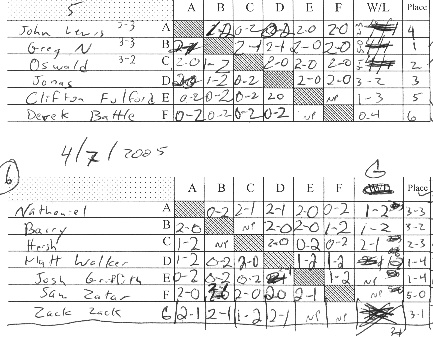 5 A B C D E F W/L Place
John Lewis 3-3 A 0-2 2-0 2-0 4
Greg N 3-3 B 2-1 2-1 2-0 2-0 1
Oswald 3-2 C 2-0 1-2 2-0 2-0 2-0 2
Jonas D 1-2 0-2 2-0 2-0 3-2 3
Clifton Fulford E 0-2 0-2 0-2 2-0 NP 1-3 5
Derek Battle F 0-2 0-2 0-2 0-2 NP 0-4 6
4/7/2005
6 G
A B C D E F Place
Nathaniel A 0-2 2-1 2-1 2-0 0-2 1-2 3-3
Barry B 2-0 NP 2-0 2-0 1-2 1-2 3-2
Hersh C 1-2 NP 2-0 0-2 0-2 2-1 2-3
Matt Walker D 1-2 0-2 2-0 1-2 1-2 1-4
Josh Griffith E 0-2 0-2 2-0 1-2 NP 1-4
Sam Zatar F 2-0 2-0 2-0 2-1 NP 5-0
Zack Zack G 2-1 2-1 1-2 2-1 NP NP 3-1